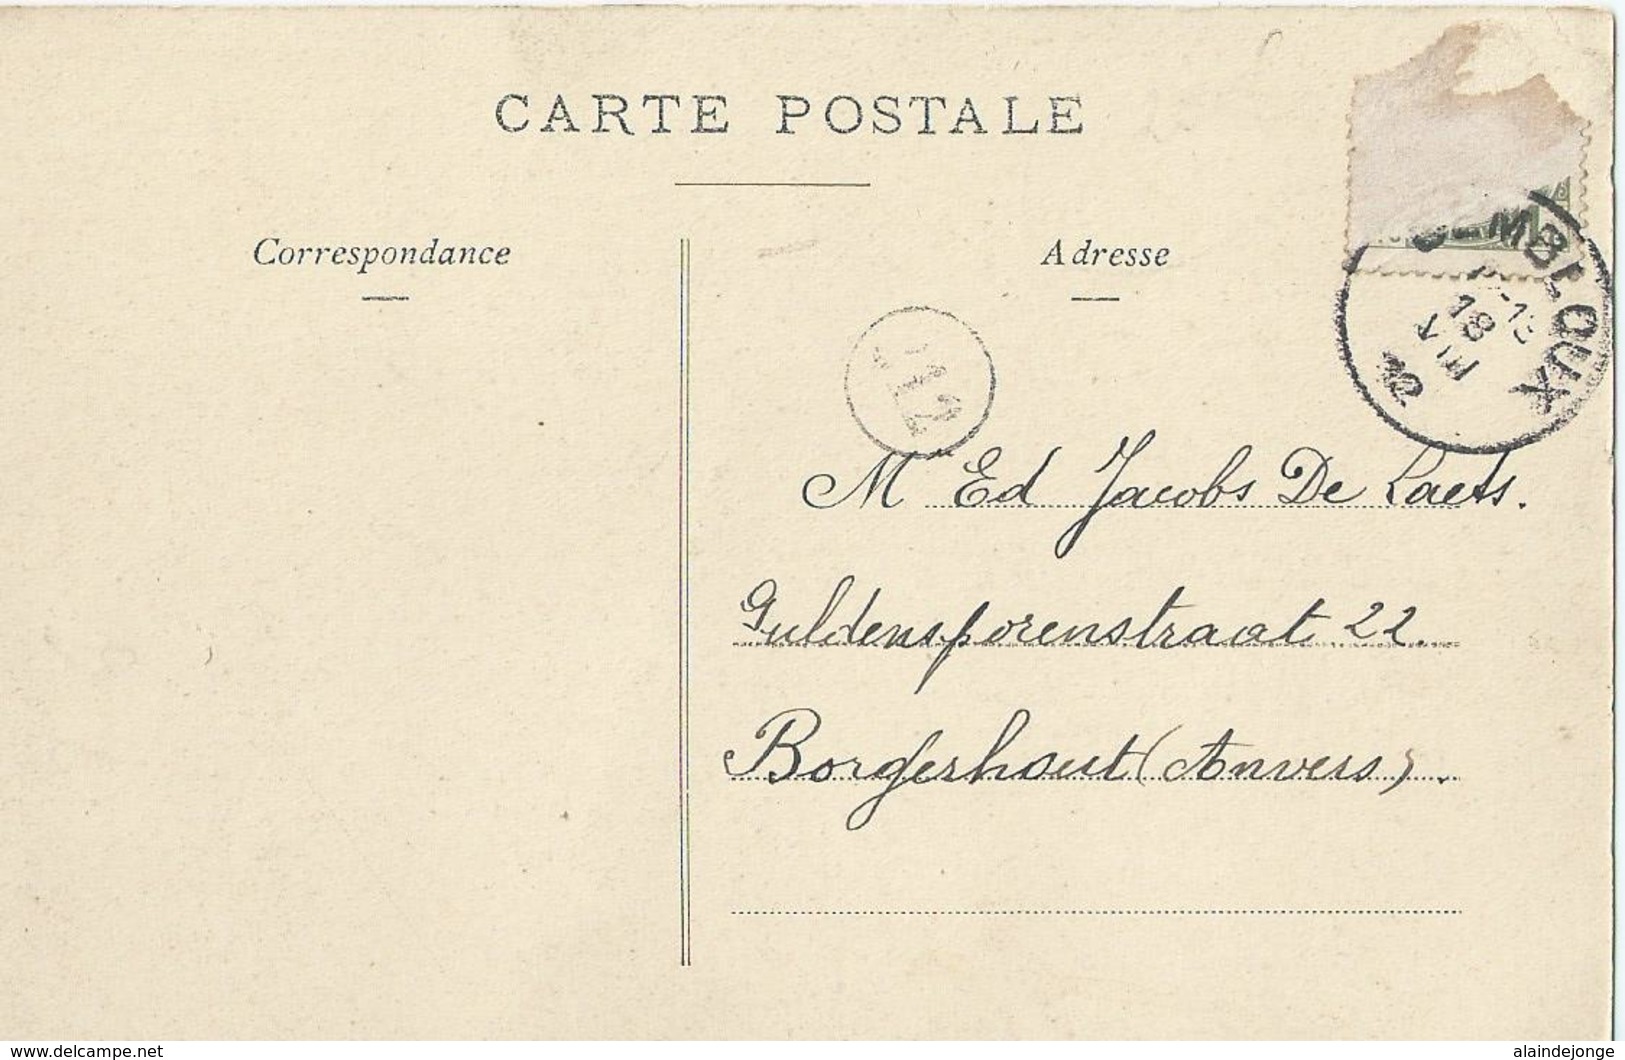 CARTE POSTALE
Correspondance
Adresse
MBLOUX
18
VIII
12
M Ed Jacobs De Laets.
Guldensporenstraat 22.
Borgerhout (Anvers).
www.delcampe.net
alaindejonge